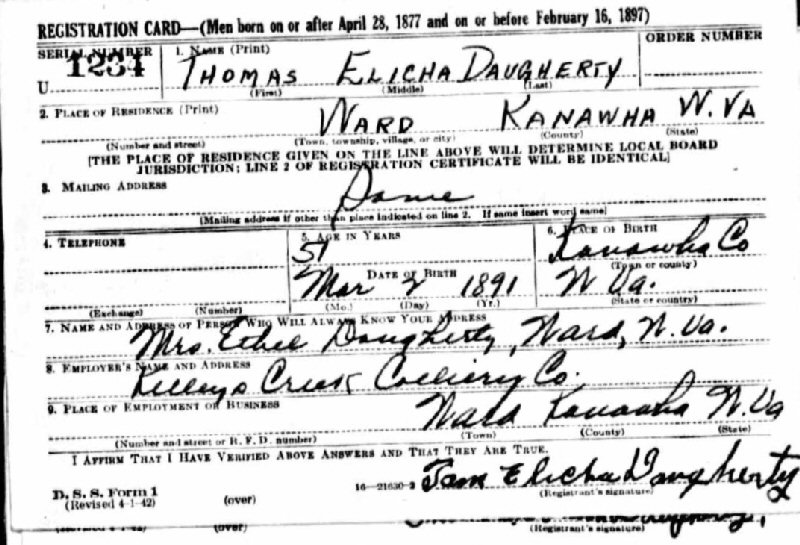 REGISTRATION CARD—(Men born on or after April 28, 1877 and on or before February 16, 1897)
SERIAL NUMBER 1. NAME (Print) ORDER NUMBER
U 1234 THOMAS ELICHA DAUGHERTY
(First) (Middle) (Last)
2. PLACE OF RESIDENCE (Print)
WARD KANAWHA W. VA
(Number and street) (Town, township, village, or city) (County) (State)
[THE PLACE OF RESIDENCE GIVEN ON THE LINE ABOVE WILL DETERMINE LOCAL BOARD
JURISDICTION; LINE 2 OF REGISTRATION CERTIFICATE WILL BE IDENTICAL]
3. MAILING ADDRESS
Same
[Mailing address if other than place indicated on line 2. If same insert word same]
4. TELEPHONE 5. AGE IN YEARS 6. PLACE OF BIRTH
51 Kanawha Co
DATE OF BIRTH (Town or county)
Mar 2 1891 W Va.
(Exchange) (Number) (Mo.) (Day) (Yr.) (State or country)
7. NAME AND ADDRESS OF PERSON WHO WILL ALWAYS KNOW YOUR ADDRESS
Mrs. Ethel Daugherty, Ward, W. Va.
8. EMPLOYER'S NAME AND ADDRESS
Kellys Creek Colliery Co.
9. PLACE OF EMPLOYMENT OR BUSINESS
Ward Kanawha W. Va
(Number and street or R. F. D. number) (Town) (County) (State)
I AFFIRM THAT I HAVE VERIFIED ABOVE ANSWERS AND THAT THEY ARE TRUE.
D. S. S. Form 1 16—21630-2 Tom Elicha Daugherty
(Revised 4-1-42) (over) (Registrant's signature)
(over) (Registrant's signature)